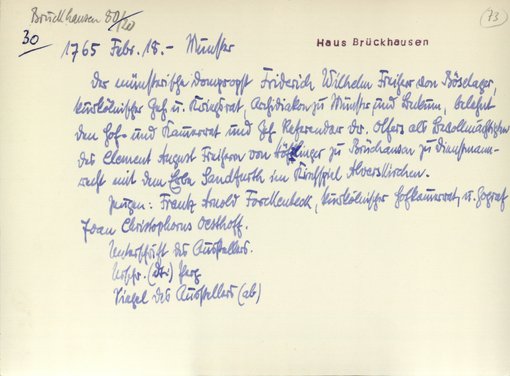 Brückhausen 80/20
73
30
1765 Febr. 18. - Münster
Haus Brückhausen
Der münsterische Dompropst Friderich Wilhelm Freiherr von Böselager,
kurkölnischer Geh. u. Kriegsrat, Archidiakon zu Münster und Beckum, belehnt
den Hof- und Kammerrat und Geh. Referendar Dr. Olfers als Bevollmächtigten
des Clement August Freiherrn von zu Brückhausen zu Dienstmann-
recht mit dem Erbe Sandfurth im Kirchspiel Alverskirchen.
Zeugen: Frantz Arnold Forckenbeck, kurkölnischer Hofkammerrat, u. Fograf
Joan Christophorus Oesthoff.
Unterschrift des Ausstellers.
Urschr. (dts.) Perg.
Siegel des Ausstellers (ab)